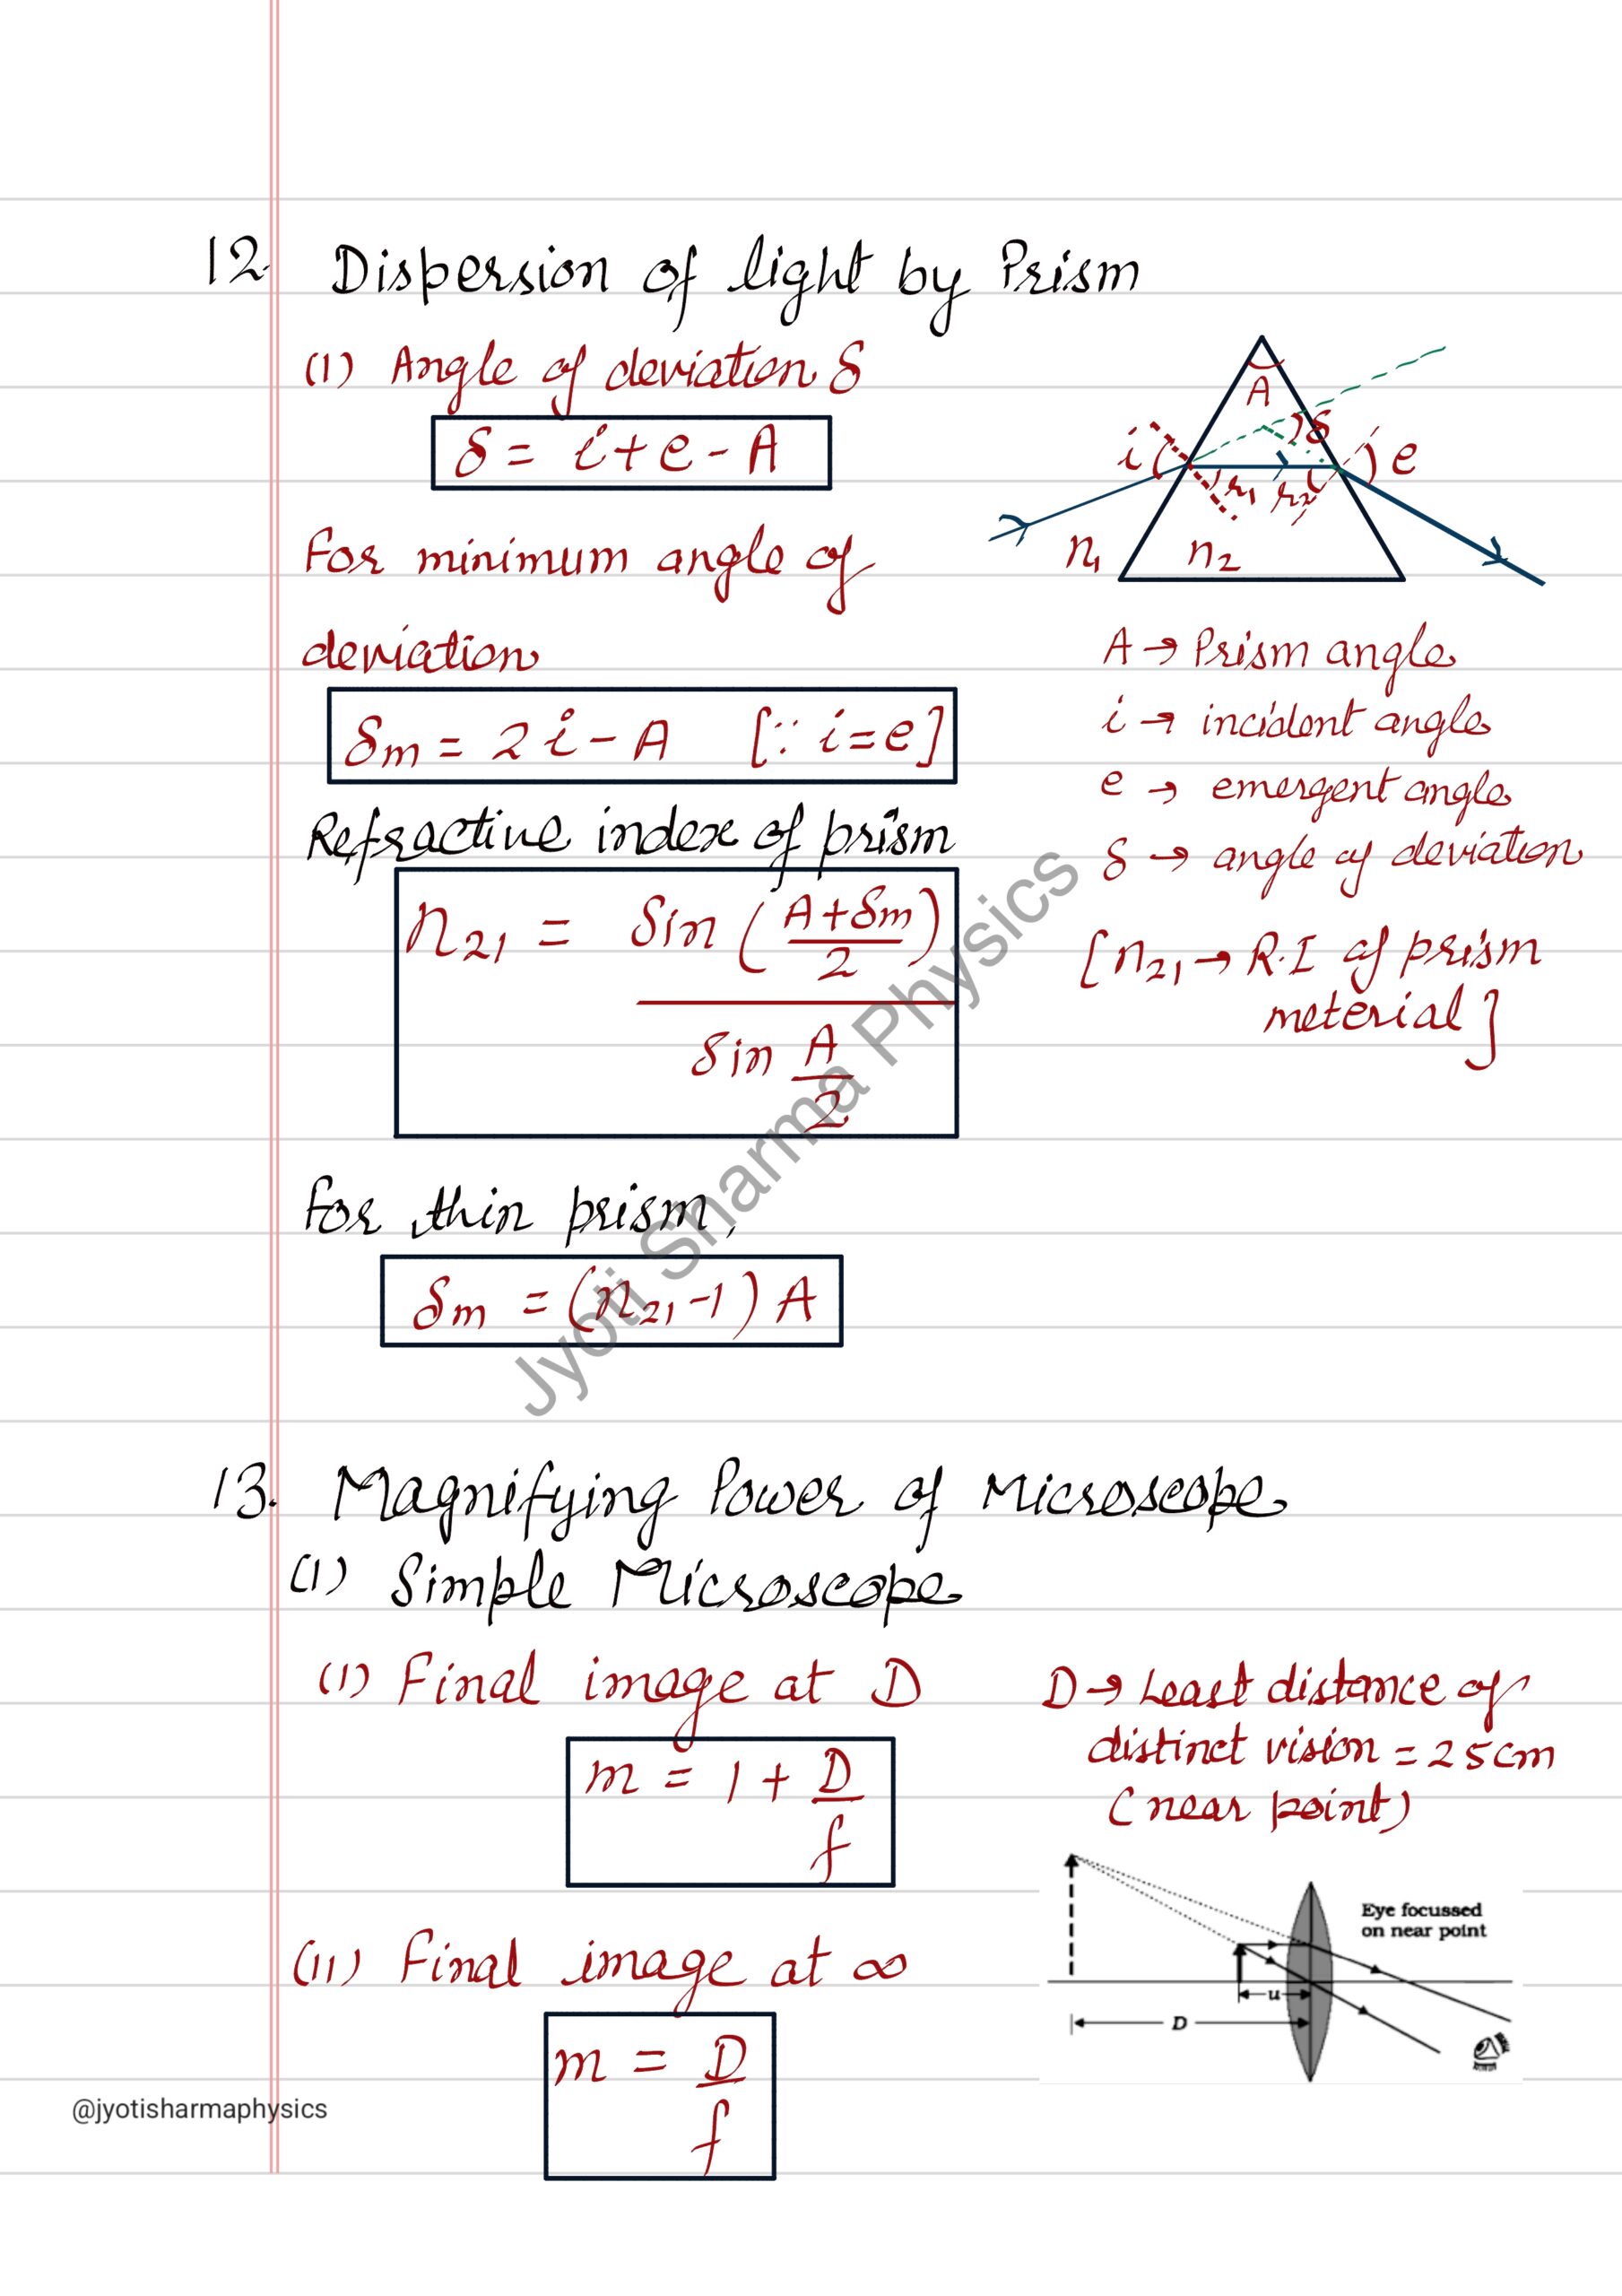 12. Dispersion of light by Prism
(1) Angle of deviation δ
δ = i + e - A
For minimum angle of
deviation
δm = 2i - A [∵ i = e]
Refractive index of prism
n21 = sin (A+δm / 2) / sin A/2
For thin prism,
δm = (n21 - 1) A
A
δ
i
e
r1
r2
n1
n2
A → Prism angle
i → incident angle
e → emergent angle
δ → angle of deviation
[n21 → R.I of prism
meterial]
13. Magnifying Power of Microscope
(1) Simple Microscope
(1) Final image at D
m = 1 + D/f
D → Least distance of
distinct vision = 25cm
(near point)
(11) Final image at ∞
m = D/f
Eye focussed
on near point
u
D
Jyoti Sharma Physics
@jyotisharmaphysics